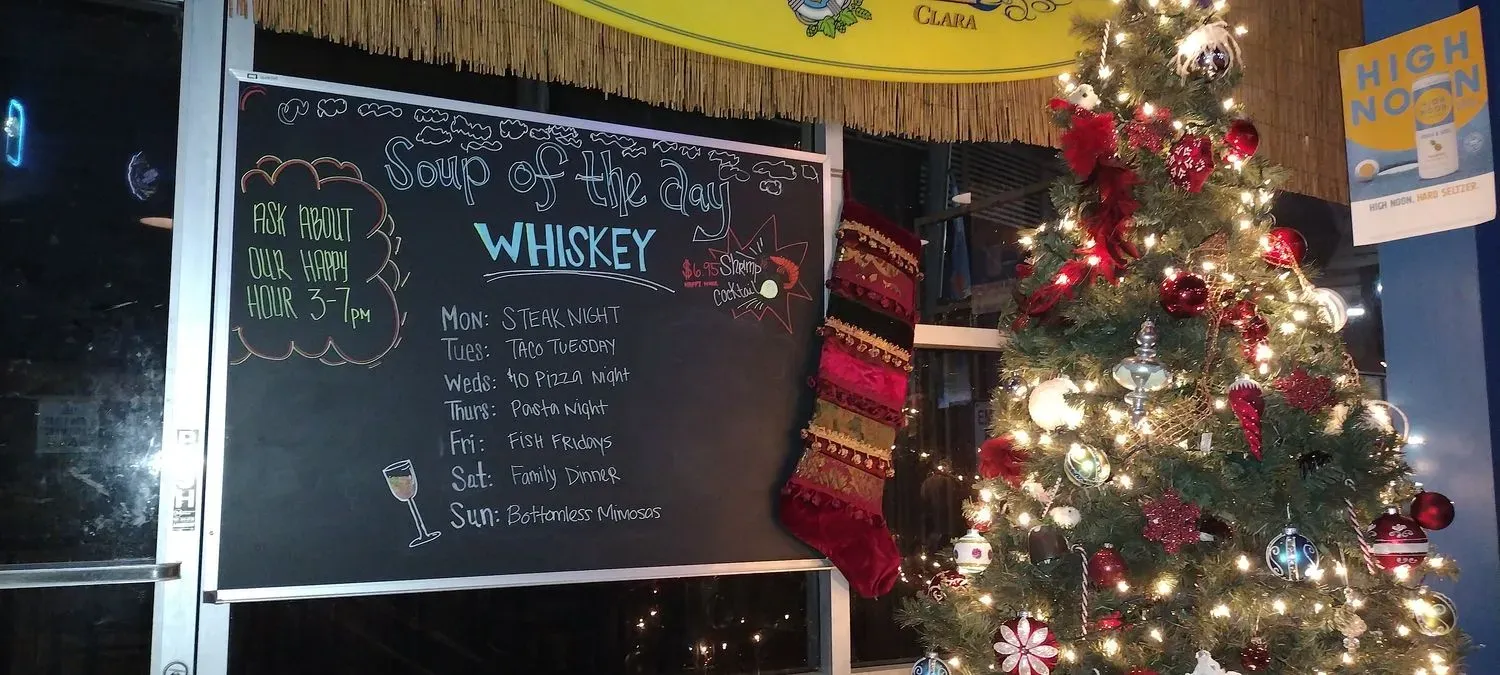 CLARA
HIGH
NOON
HIGH NOON. HARD SELTZER.
Soup of the day
WHISKEY
ASK ABOUT
OUR HAPPY
HOUR 3-7PM
$6.95 Shrimp
HAPPY HOUR
cocktail
MON: STEAK NIGHT
TUES: TACO TUESDAY
WEDS: $10 Pizza Night
THURS: Pasta Night
FRI: FISH FRIDAYS
Sat: Family Dinner
Sun: Bottomless Mimosas